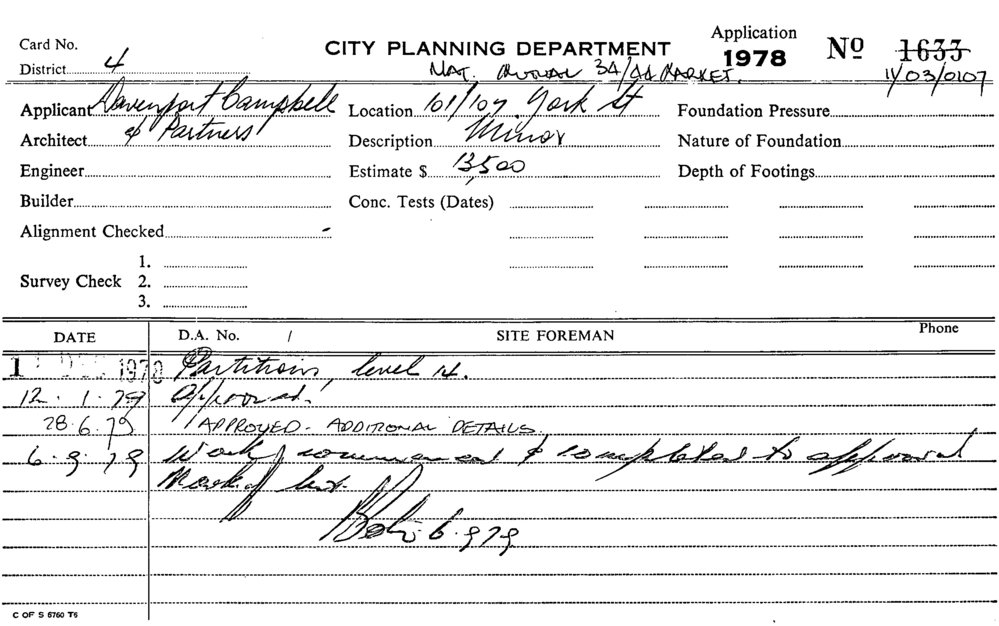 Card No.
CITY PLANNING DEPARTMENT
Application
1978
Nº 1633
District 4
NAT. MUTUAL 34/44 MARKET.
11/03/0107
Applicant Davenport Campbell
Location 101/107 York St
Foundation Pressure
Architect & Partners
Description Minor
Nature of Foundation
Engineer
Estimate $ 13,500
Depth of Footings
Builder
Conc. Tests (Dates)
Alignment Checked
Survey Check
1.
2.
3.
DATE
D.A. No. /
SITE FOREMAN
Phone
DEC 1978 Partitions, level 14.
12.1.79 Approved.
28.6.79 APPROVED - ADDITIONAL DETAILS.
6.9.79 Work commenced & completed to approval
6.9.79
C OF S 6760 T6